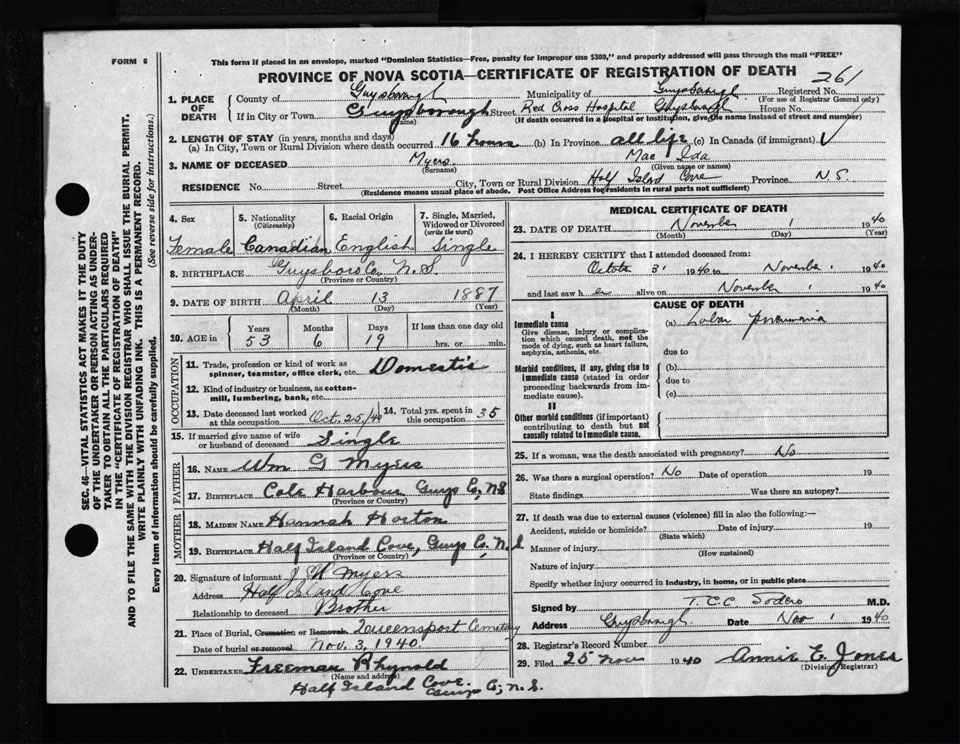 FORM 6
This form if placed in an envelope, marked "Dominion Statistics—Free, penalty for improper use $300," and properly addressed will pass through the mail "FREE"
PROVINCE OF NOVA SCOTIA—CERTIFICATE OF REGISTRATION OF DEATH 261
1. PLACE OF DEATH
County of Guysborough Municipality of Guysborough Registered No.
(For use of Registrar General only)
If in City or Town Guysborough Street Red Cross Hospital Guysborough House No.
(name) (If death occurred in a hospital or institution, give its name instead of street and number)
2. LENGTH OF STAY (in years, months and days)
(a) In City, Town or Rural Division where death occurred 16 hours (b) In Province all life (c) In Canada (if immigrant)
3. NAME OF DECEASED Myers. Mae Ida
(Surname) (Given name or names)
RESIDENCE No. Street City, Town or Rural Division Half Island Cove Province N.S.
(Residence means usual place of abode. Post Office Address for residents in rural parts not sufficient)
4. Sex Female
5. Nationality (Citizenship) Canadian
6. Racial Origin English
7. Single, Married, Widowed or Divorced (write the word) Single
8. BIRTHPLACE Guysboro Co. N.S.
(Province or Country)
9. DATE OF BIRTH April 13 1887
(Month) (Day) (Year)
10. AGE in Years 53 Months 6 Days 19 If less than one day old hrs. or min.
OCCUPATION
11. Trade, profession or kind of work as spinner, teamster, office clerk, etc. Domestic
12. Kind of industry or business, as cotton-mill, lumbering, bank, etc.
13. Date deceased last worked at this occupation Oct. 25/40
14. Total yrs. spent in this occupation 35
15. If married give name of wife or husband of deceased Single
FATHER
16. NAME Wm G Myers
17. BIRTHPLACE Cole Harbour Guys Co, N.S.
(Province or Country)
MOTHER
18. MAIDEN NAME Hannah Horton
19. BIRTHPLACE Half Island Cove, Guys Co, N.S
(Province or Country)
20. Signature of informant J W Myers
Address Half Island Cove
Relationship to deceased Brother
21. Place of Burial, Cremation or Removal Queensport Cemetery
Date of burial or removal Nov. 3, 1940.
22. UNDERTAKER Freeman Rhynold
(Name and address)
Half Island Cove.
Guys Co, N.S.
MEDICAL CERTIFICATE OF DEATH
23. DATE OF DEATH November 1 1940
(Month) (Day) (Year)
24. I HEREBY CERTIFY that I attended deceased from:
October 31 1940 to November 1 1940
and last saw h er alive on November 1 1940
CAUSE OF DEATH
I
Immediate cause
Give disease, injury or complication which caused death, not the mode of dying, such as heart failure, asphyxia, asthenia, etc.
(a) Lobar pneumonia
due to
Morbid conditions, if any, giving rise to immediate cause (stated in order proceeding backwards from immediate cause).
(b)
due to
(c)
II
Other morbid conditions (if important) contributing to death but not causally related to immediate cause.
25. If a woman, was the death associated with pregnancy? No
26. Was there a surgical operation? No Date of operation 19
State findings Was there an autopsy?
27. If death was due to external causes (violence) fill in also the following:—
Accident, suicide or homicide? Date of injury 19
(State which)
Manner of injury
(How sustained)
Nature of injury
Specify whether injury occurred in industry, in home, or in public place
Signed by T.C.C. Sodero M.D.
Address Guysborough Date Nov 1 1940
28. Registrar's Record Number
29. Filed 25 Nov 1940 Annie E. Jones
(Division Registrar)
SEC. 46—VITAL STATISTICS ACT MAKES IT THE DUTY
OF THE UNDERTAKER OR PERSON ACTING AS UNDER-
TAKER TO OBTAIN ALL THE PARTICULARS REQUIRED
IN THE "CERTIFICATE OF REGISTRATION OF DEATH"
AND TO FILE THE SAME WITH THE DIVISION REGISTRAR WHO SHALL ISSUE THE BURIAL PERMIT.
WRITE PLAINLY WITH UNFADING INK. THIS IS A PERMANENT RECORD.
Every item of information should be carefully supplied. (See reverse side for instructions.)